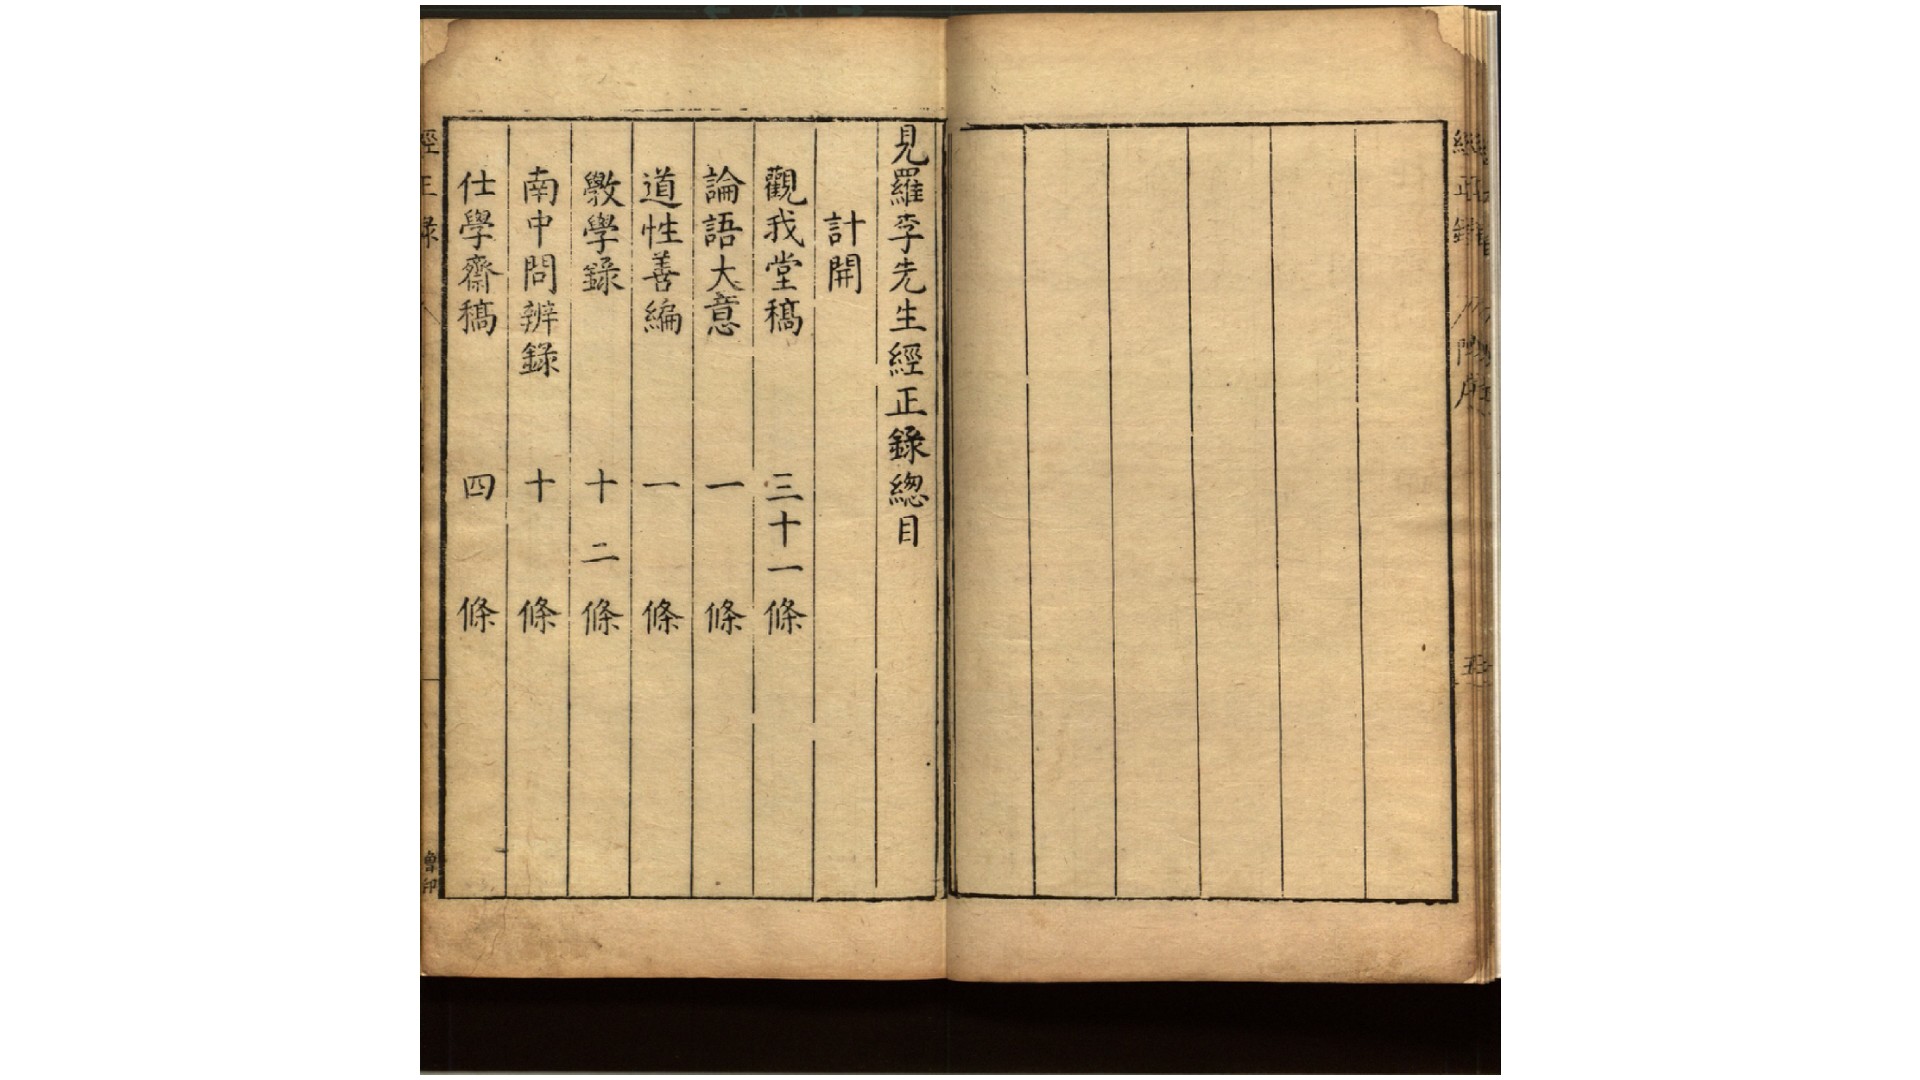 見羅李先生經正錄緫目
計開
觀我堂稿 三十一條
論語大意 一條
道性善編 一條
敎學錄 十二條
南中問辨錄 十條
仕學齋稿 四條